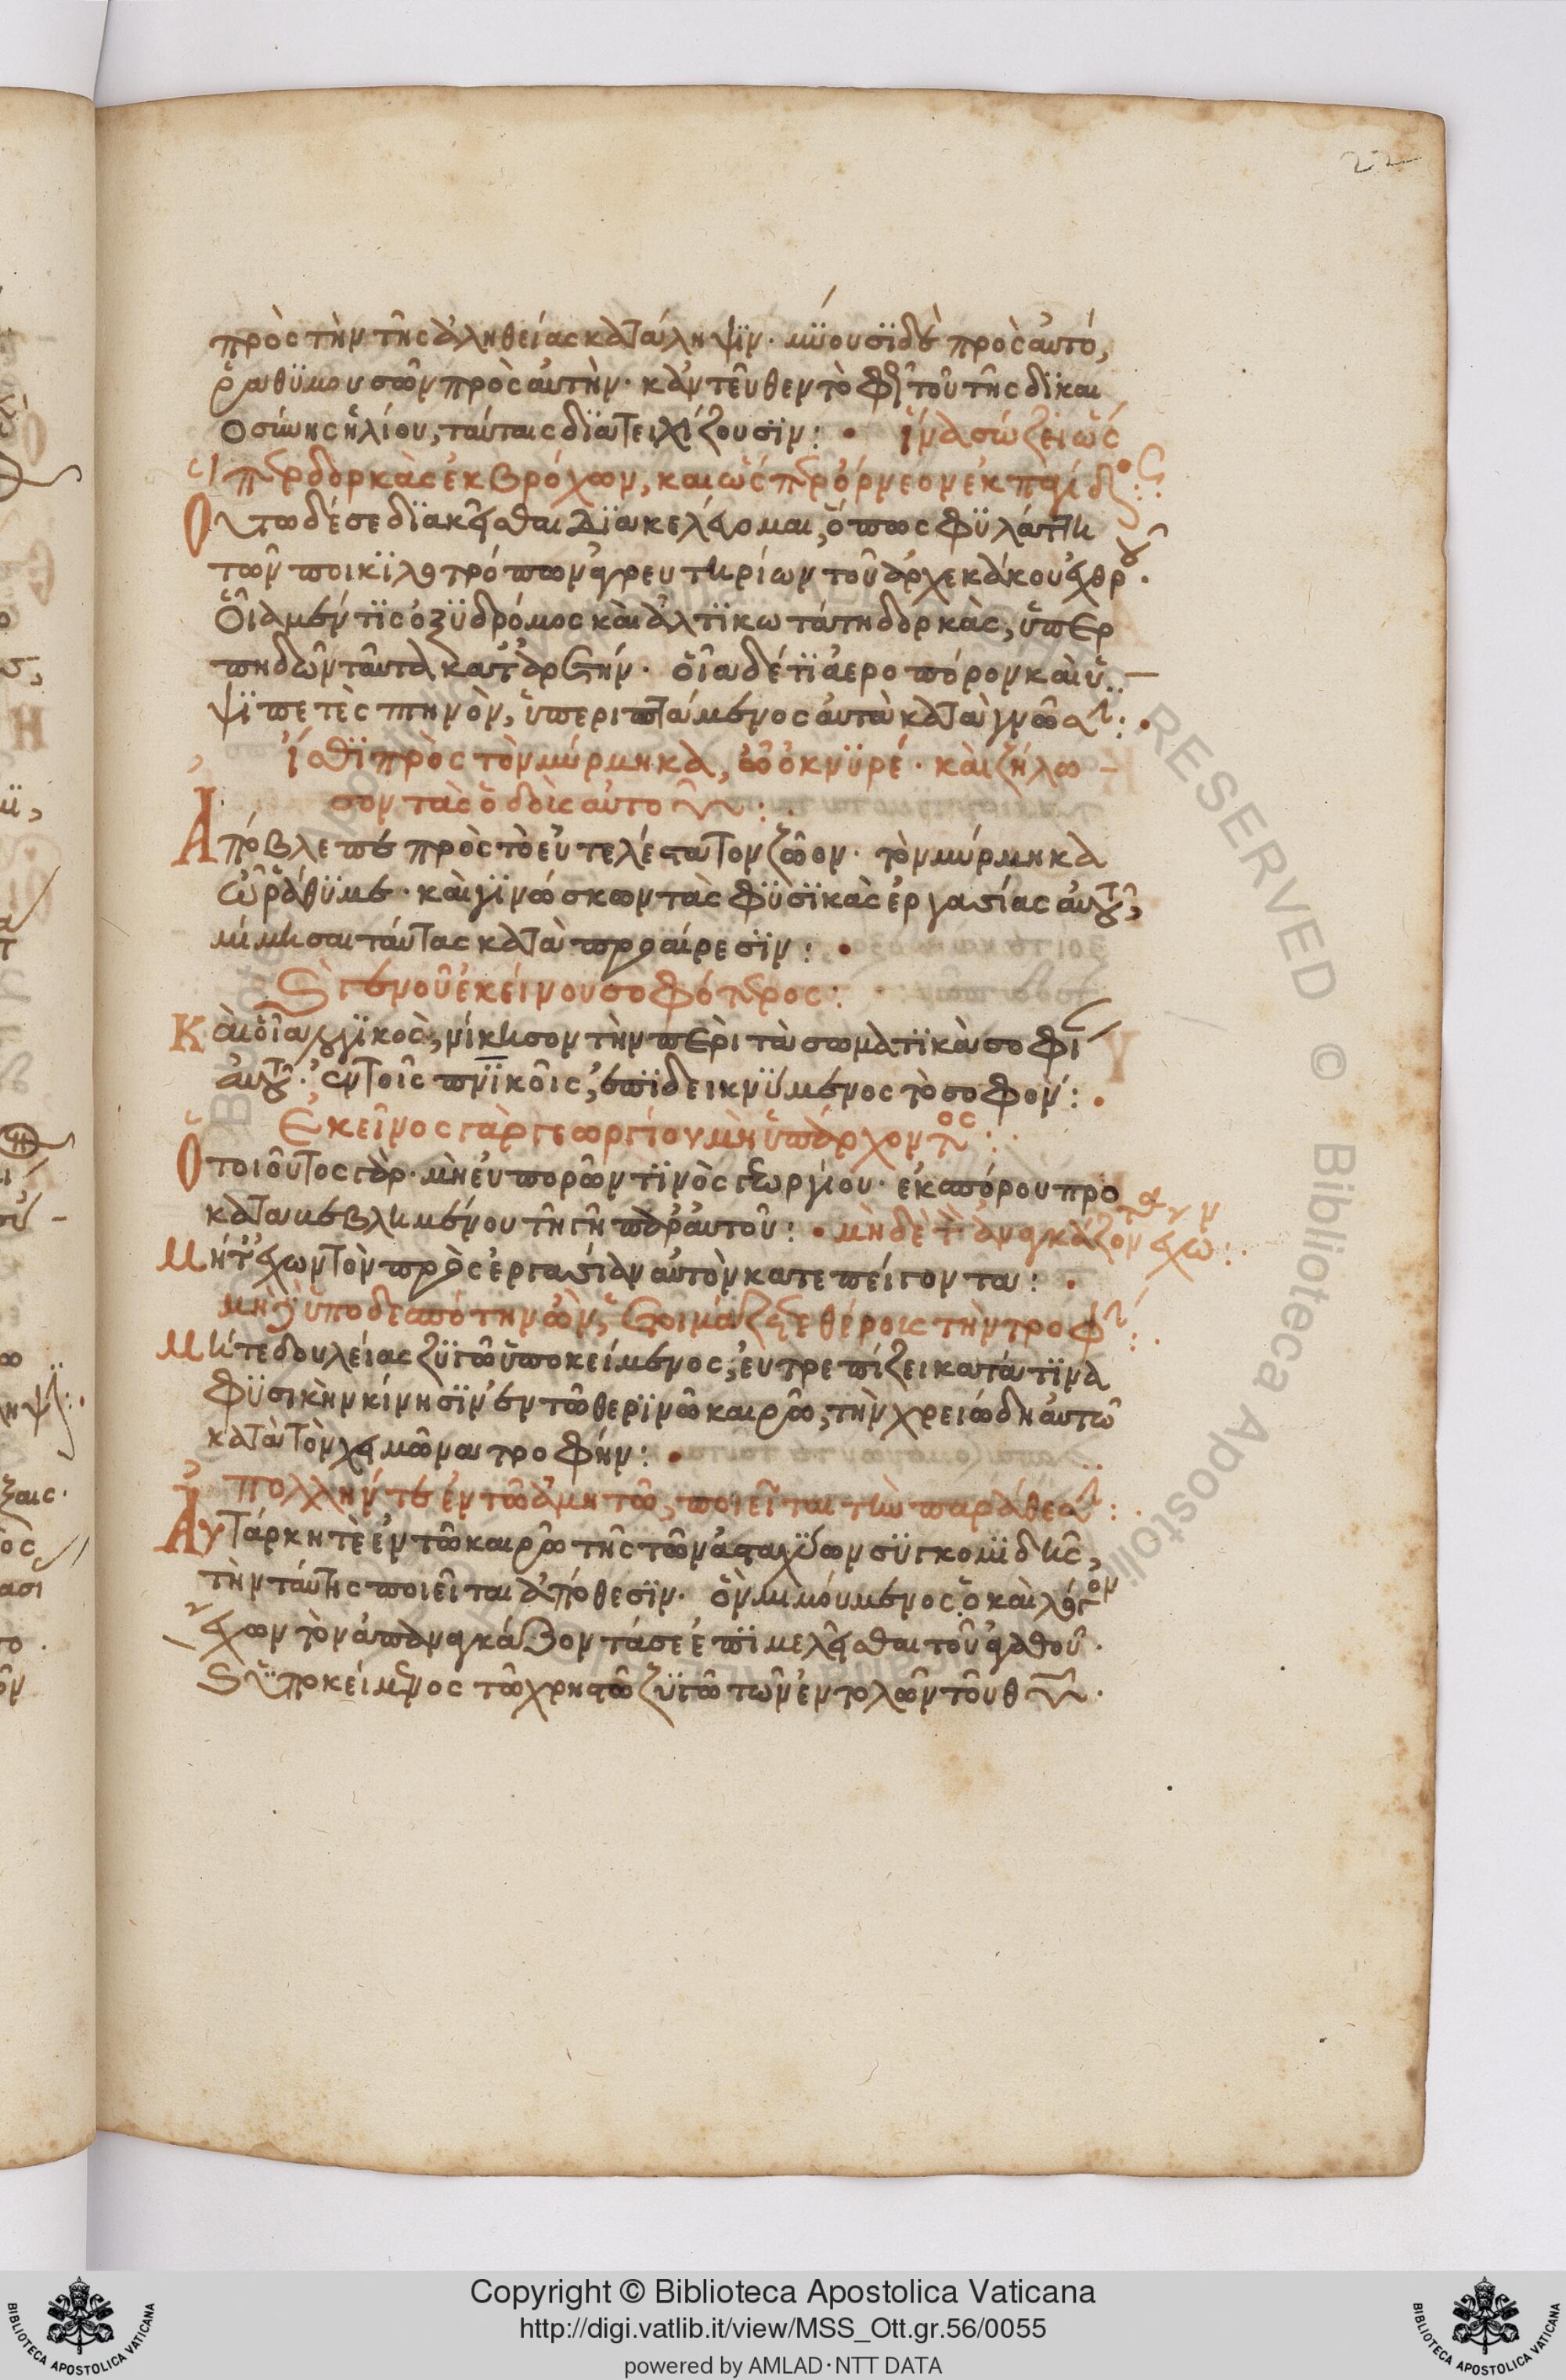 22
πρὸς τὴν τῆς ἀληθείας κατάληψϊν· μϋουσϊ δὲ πρὸς αὐτό,
ῥαθϋμουσῶν πρὸς αὐτὴν· κἀντεῦθεν τὸ φῶς τοῦ τῆς δϊκαι
οσύνης ἡλίου, ταύταις δϊατειχίζουσϊν: • ἵνα σώζει ὥς
περ δορκὰς ἐκ βρόχων, καὶ ὥσπερ ὄρνεον ἐκ παγίδος:
Οὕτω δέ σε δϊακεῖσθαι δϊακελεύομαι, ὅπως φϋλάττῃ
τῶν ποικϊλοτρόπων ἀγρευτηρίων τοῦ ἀρχεκάκου ἐχθροῦ·
Οἷα μέν τϊς ὀξϋδρόμος καὶ ἁλτϊκωτάτη δορκὰς, ὑπερ
πηδῶν ταῦτα κατ' ἀρετήν· οἷα δέ τϊ ἀεροπόρον καὶ ὑ
ψϊπετὲς πτηνὸν, ὑπεριπτάμενος αὐτὰ κατὰ γνῶσιν: •
ἴσθϊ πρὸς τὸν μύρμηκα, ὦ ὀκνϋρέ· καὶ ζήλω
σον τὰς ὁδοὺς αὐτοῦ:
Ἀπόβλεπε πρὸς τὸ εὐτελέστατον ζῶον· τὸν μύρμηκα
ὦ ῥάθϋμε· καὶ γϊνώσκων τὰς φϋσϊκὰς ἐργασίας αὐτοῦ,
μίμησαι ταύτας κατὰ προαίρεσϊν: •
Γενοῦ ἐκείνου σοφώτερος:
Καὶ οἷα λογϊκὸς, νίκησον τὴν περὶ τὰ σωματϊκὰ σοφί
αὐτοῦ· ἐν τοῖς πνϊκοῖς, ἐπϊδεικνϋμενος τὸ σοφὸν: •
Ἐκεῖνος γὰρ γεωργίου μὴ ὑπάρχοντος:
Ὁ τοιοῦτος γὰρ· μὴ εὐπορῶν τϊνὸς γεωργίου· ἐκ σπόρου προ
καταβεβλημένου τῇ γῇ παρ' αὐτοῦ: • μηδὲ τὸν ἀναγκάζοντα ἔχων:
Μήτ' ἔχων τὸν πρὸς ἐργασίαν αὐτὸν κατεπείγοντα: •
μὴδ' ὑπὸ δεσπότην ὢν, ἑτοιμάζεται θέρους τὴν τροφὴν:
Μήτε δουλείας ζϋγῷ ὑποκείμενος, εὐτρεπίζει κατά τϊνα
φϋσικὴν κίνησϊν ἐν τῷ θερϊνῷ καιρῷ, τὴν χρειώδη αὐτῷ
κατὰ τὸν χειμῶνα τροφήν: •
πολλήν τε ἐν τῷ ἀμητῷ, ποιεῖται τὴν παράθεσιν:
Αὐτάρκη τὲ ἐν τῷ καιρῷ τῆς τῶν ἀσταχϋων σϋγκομϊδῆς,
τὴν ταύτης ποιεῖται ἀπόθεσϊν· ὃν μιμούμενος ὁ καὶ λόγον
ἔχων τὸν ἀπαναγκάζοντά σε ἐπϊμελεῖσθαι τοῦ ἀγαθοῦ·
Ὁ ὑποκείμενος τῷ χρηστῷ ζϋγῷ τῶν ἐντολῶν τοῦ θεοῦ·
Copyright © Biblioteca Apostolica Vaticana
http://digi.vatlib.it/view/MSS_Ott.gr.56/0055
powered by AMLAD·NTT DATA